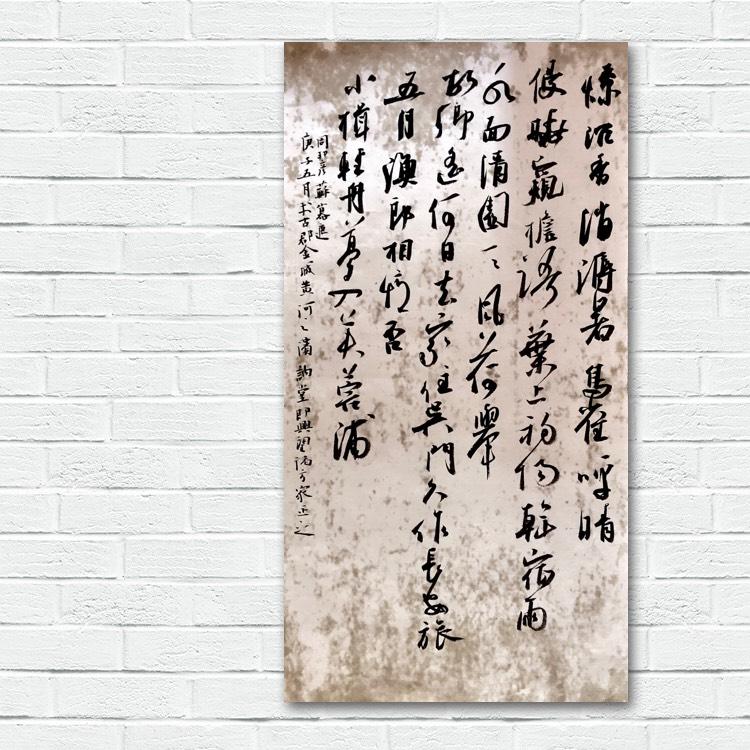 燎沉香消溽暑鳥雀呼晴
侵曉窺檐語葉上初陽乾宿雨
水面清圓一一風荷舉
故鄉遙何日去家住吳門久作長安旅
五月漁郎相憶否
小楫輕舟夢入芙蓉浦
周邦彥蘇幕遮
庚子五月於古郡金城黃河之濱訥堂即興